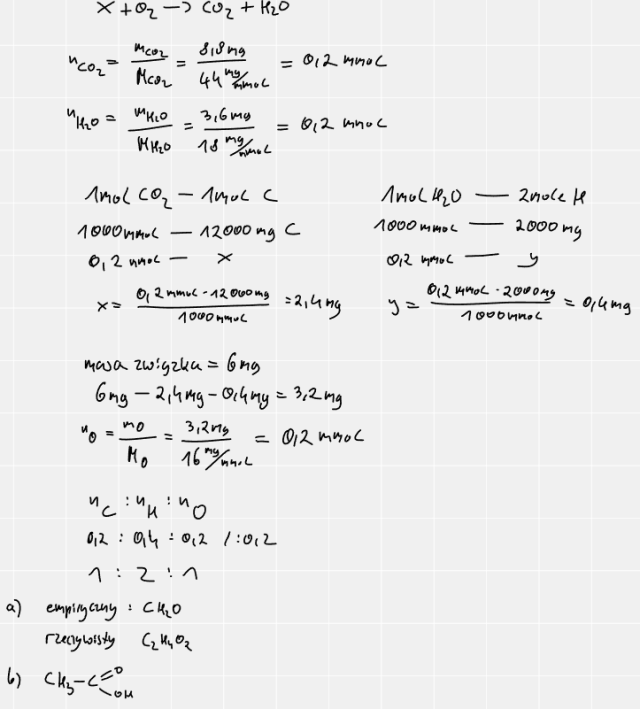 X + O₂ → CO₂ + H₂O
nCO₂ = mCO₂ / MCO₂ = 8,8 mg / 44 mg/mmol = 0,2 mmol
nH₂O = mH₂O / MH₂O = 3,6 mg / 18 mg/mmol = 0,2 mmol
1 mol CO₂ – 1 mol C
1000 mmol – 12000 mg C
0,2 mmol – x
x = 0,2 mmol · 12000 mg / 1000 mmol = 2,4 mg
1 mol H₂O — 2 mole H
1000 mmol — 2000 mg
0,2 mmol — y
y = 0,2 mmol · 2000 mg / 1000 mmol = 0,4 mg
masa związka = 6 mg
6 mg – 2,4 mg – 0,4 mg = 3,2 mg
nO = mO / MO = 3,2 mg / 16 mg/mmol = 0,2 mmol
nC : nH : nO
0,2 : 0,4 : 0,2 / : 0,2
1 : 2 : 1
a) empiryczny : CH₂O
rzeczywisty C₂H₄O₂
b) CH₃–C=O
OH